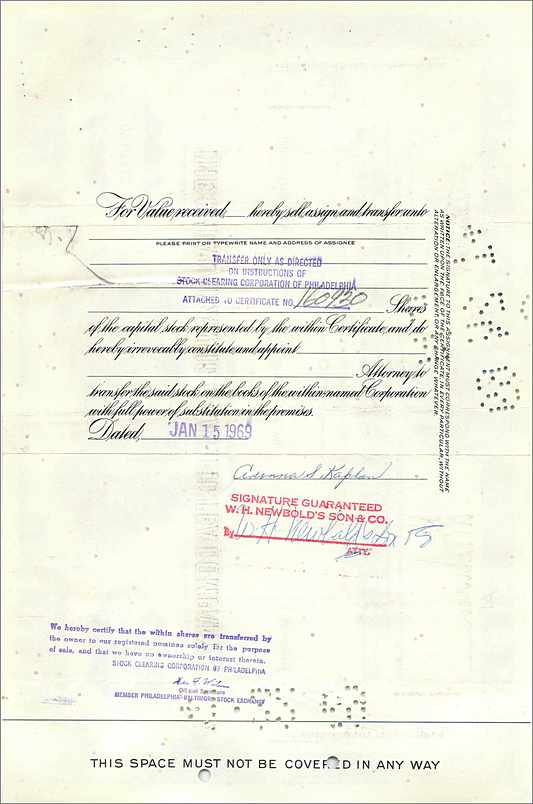 For Value received, hereby sell, assign and transfer unto
PLEASE PRINT OR TYPEWRITE NAME AND ADDRESS OF ASSIGNEE
TRANSFER ONLY AS DIRECTED
ON INSTRUCTIONS OF
STOCK CLEARING CORPORATION OF PHILADELPHIA
ATTACHED TO CERTIFICATE NO. 160920 Shares
of the capital stock represented by the within Certificate, and do
hereby irrevocably constitute and appoint
Attorney to
transfer the said stock on the books of the within-named Corporation
with full power of substitution in the premises.
Dated, JAN 15 1969
NOTICE: THE SIGNATURE TO THIS ASSIGNMENT MUST CORRESPOND WITH THE NAME
AS WRITTEN UPON THE FACE OF THE CERTIFICATE IN EVERY PARTICULAR, WITHOUT
ALTERATION OR ENLARGEMENT OR ANY CHANGE WHATEVER.
S. Kaplan
SIGNATURE GUARANTEED
W. H. NEWBOLD'S SON & CO.
By W H Newbold's Son
We hereby certify that the within shares are transferred by
the owner to our registered nominee solely for the purpose
of sale, and that we have no ownership or interest therein.
STOCK CLEARING CORPORATION OF PHILADELPHIA
MEMBER PHILADELPHIA-BALTIMORE STOCK EXCHANGE
THIS SPACE MUST NOT BE COVERED IN ANY WAY